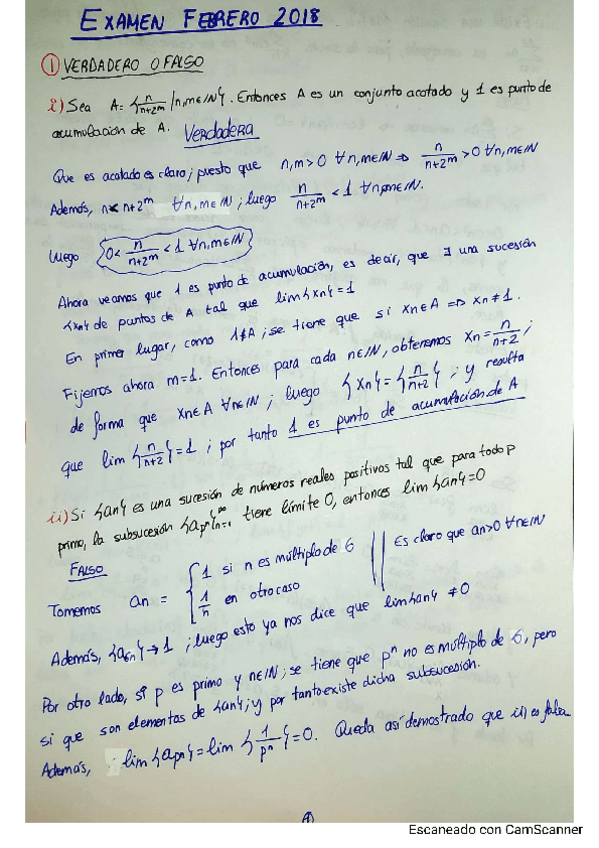 EXAMEN FEBRERO 2018
① VERDADERO O FALSO
i) Sea A = {n/(n+2^m) / n,m∈ℕ}. Entonces A es un conjunto acotado y 1 es punto de
acumulación de A. Verdadera
Que es acotado es claro; puesto que n,m>0 ∀n,m∈ℕ ⇒ n/(n+2^m) >0 ∀n,m∈ℕ
Además, n<n+2^m ∀n,m∈ℕ; luego n/(n+2^m) < 1 ∀n,m∈ℕ.
Luego 0< n/(n+2^m) < 1 ∀n,m∈ℕ
Ahora veamos que 1 es punto de acumulación, es decir, que ∃ una sucesión
{xn} de puntos de A tal que lim{xn}=1
En primer lugar, como 1∉A; se tiene que si xn∈A ⇒ xn≠1.
Fijemos ahora m=1. Entonces para cada n∈ℕ, obtenemos xn = n/(n+2);
de forma que xn∈A ∀n∈ℕ; luego {xn}={n/(n+2)}; y resulta
que lim{n/(n+2)}=1; por tanto 1 es punto de acumulación de A
ii) Si {an} es una sucesión de números reales positivos tal que para todo p
primo, la subsucesión {ap^n}∞n=1 tiene límite 0, entonces lim{an}=0
FALSO
Tomemos an = { 1 si n es múltiplo de 6 || Es claro que an>0 ∀n∈ℕ
1/n en otro caso
Además, {a6n}→1; luego esto ya nos dice que lim{an} ≠ 0
Por otro lado, si p es primo y n∈ℕ; se tiene que p^n no es múltiplo de 6, pero
si que son elementos de {an}; y por tanto existe dicha subsucesión.
Además, lim{ap^n}=lim{1/p^n}=0. Queda así demostrado que ii) es falsa
①
Escaneado con CamScanner